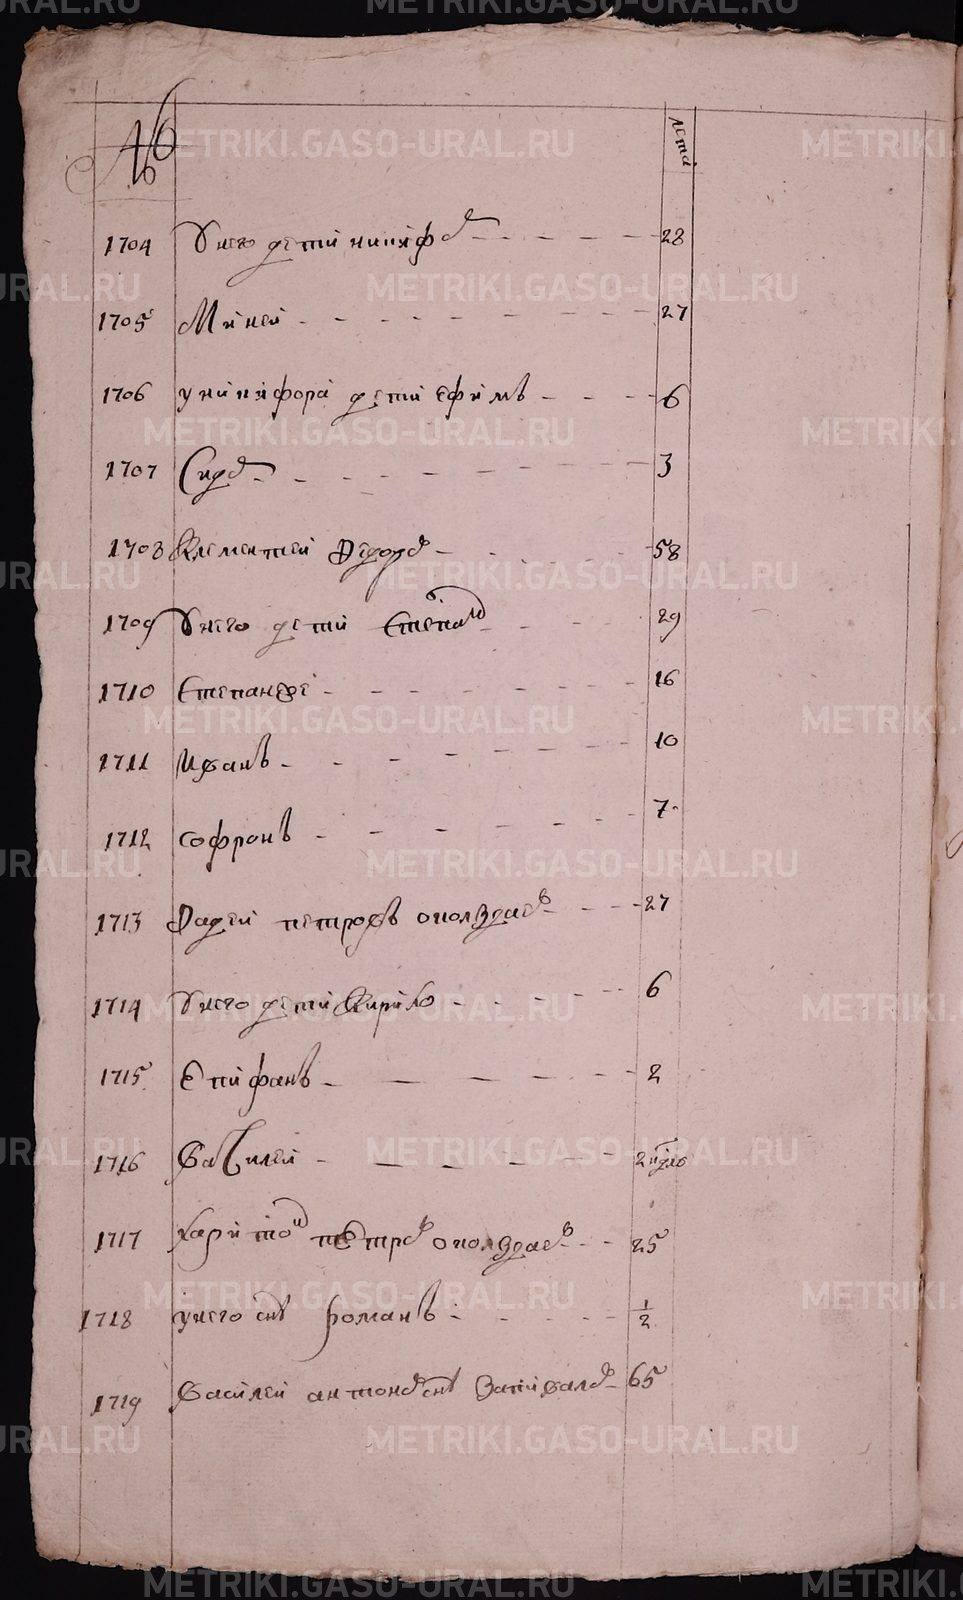 № лета
1704 У него дети никифор 28
1705 Миней 27
1706 у никифора дети ефимъ 6
1707 Сидор 3
1708 Клементей Федоров 58
1709 У него дети Степан 29
1710 Степан же 16
1711 Иванъ 10
1712 софронъ 7
1713 Фадей петровъ ополздаев 27
1714 У него дети Кирило 6
1715 Епифанъ 2
1716 Василей 2 нѣдѣ
1717 харитон петров ополздаев 25
1718 у него снъ романъ 1/2
1719 Василей антонов снъ Запивалов 65